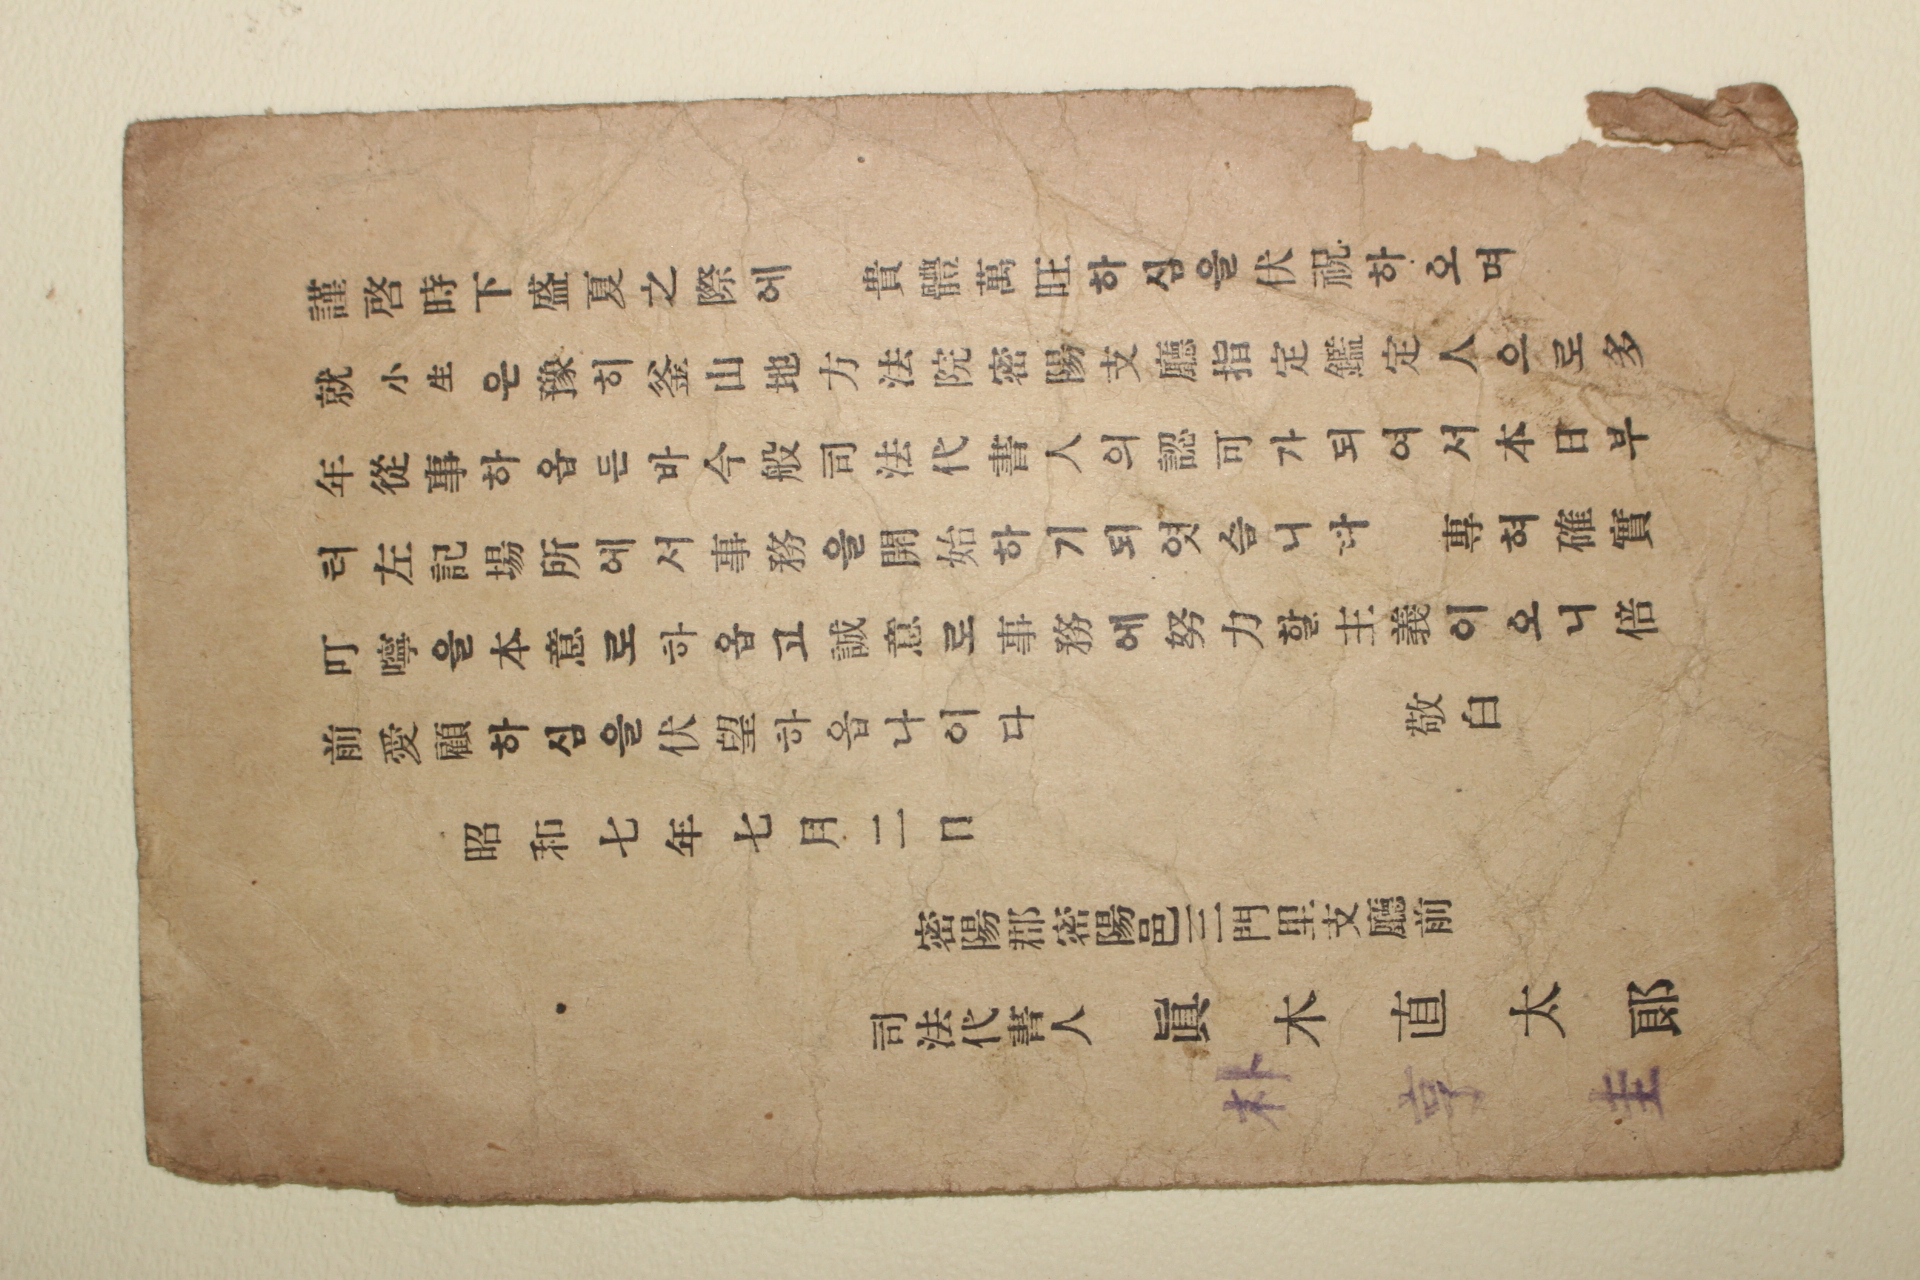 謹啓時下盛夏之際에 貴體萬旺하심을伏祝하오며
就小生은豫히釜山地方法院密陽支廳指定鑑定人으로多
年從事하옵든바今般司法代書人의認可가되여서本日부
터左記場所에서事務을開始하기되엿슴니다 專혀確實
叮嚀을本意로하옵고誠意로事務에努力할主義이오니倍
前愛顧하심을伏望하옵나이다
敬白
昭和七年七月二日
密陽郡密陽邑三門里支廳前
司法代書人 眞木直太郞
朴亨圭